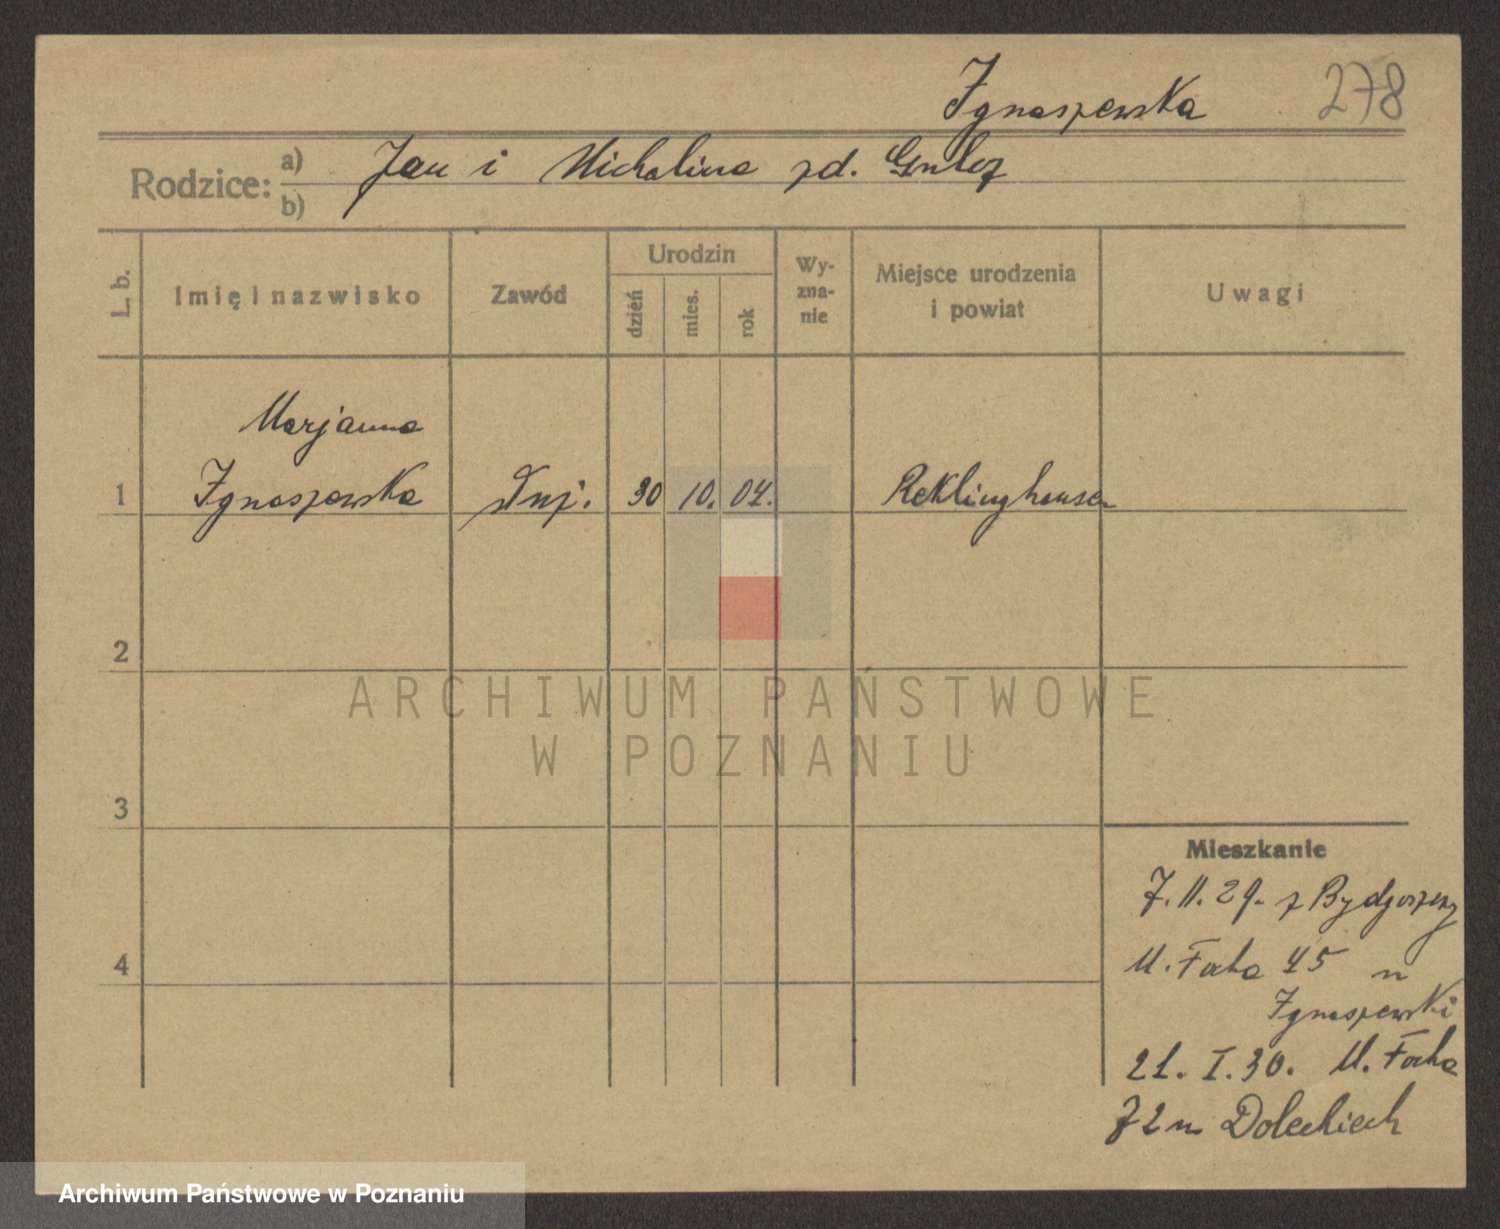 Ignaszewska 278
Rodzice: a) Jan i Michalina zd.
b)
L. b. Imię i nazwisko Zawód Urodzin dzień mies. rok Wyznanie Miejsce urodzenia i powiat Uwagi
Marjanna
1 Ignaszewska 30 10. 04. Reklinghausen
2
ARCHIWUM PAŃSTWOWE
W POZNANIU
3
Mieszkanie
7.11.29. z Bydgoszczy
4 Ul. Focha 45 u
Ignaszewski
21. I. 30. Ul. Focha
72 u
Archiwum Państwowe w Poznaniu